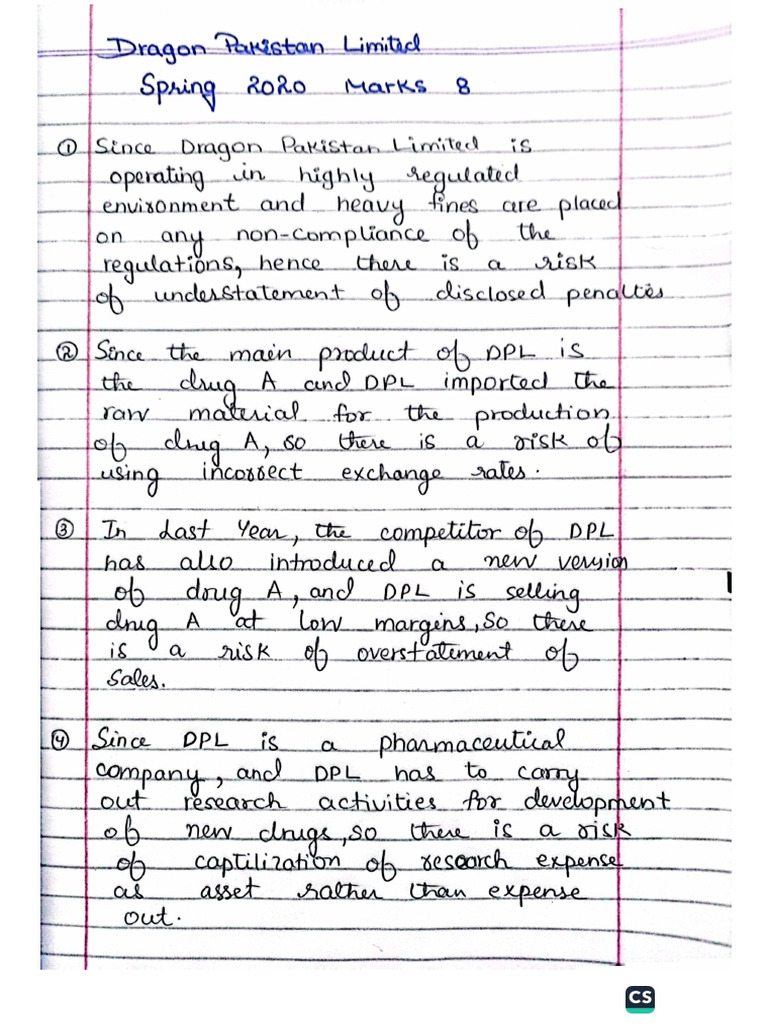 Dragon Pakistan Limited
Spring 2020 Marks 8
① Since Dragon Pakistan Limited is
operating in highly regulated
environment and heavy fines are placed
on any non-compliance of the
regulations, hence there is a risk
of understatement of disclosed penaltes
② Since the main product of DPL is
the drug A and DPL imported the
raw material for the production
of drug A, so there is a risk of
using incorrect exchange rates.
③ In Last Year, the competitor of DPL
has also introduced a new version
of drug A, and DPL is selling
drug A at low margins, so there
is a risk of overstatement of
sales.
④ Since DPL is a pharmaceutical
company, and DPL has to carry
out research activities for development
of new drugs, so there is a risk
of captilization of research expense
as asset rather than expense
out.
CS